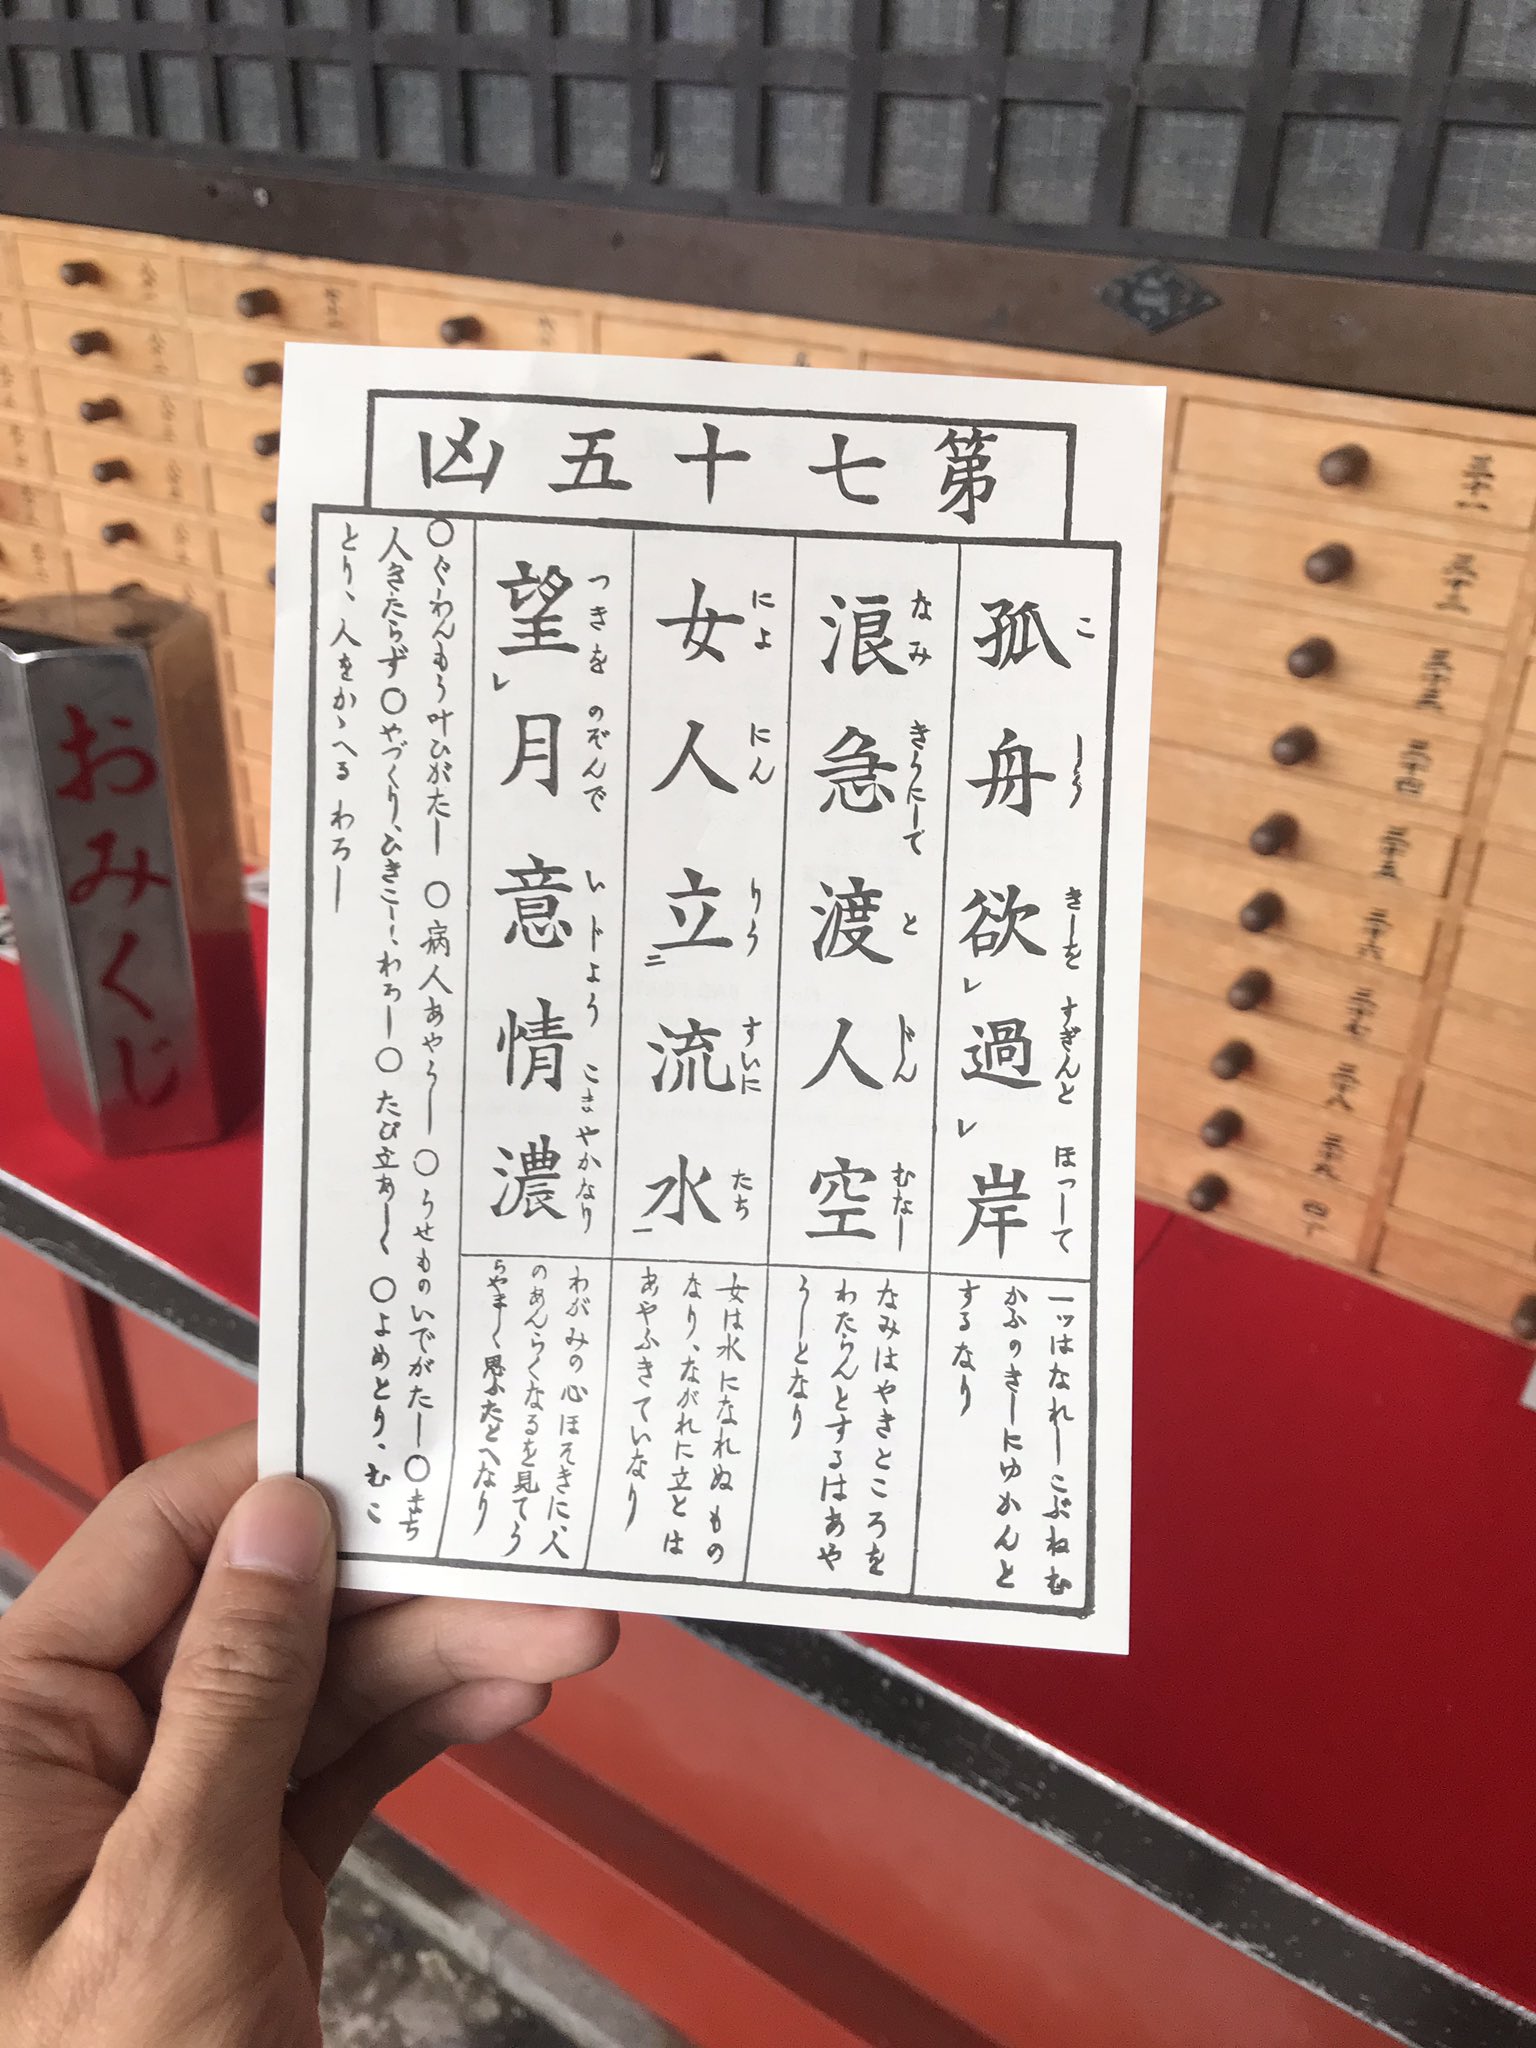 第七十五凶
孤舟欲レ過レ岸
こしうきしをすぎんとほつして
一ツはなれしこぶねむ
かふのきしにゆかんと
するなり
浪急渡人空
なみきうにしてとじんむなし
なみはやきところを
わたらんとするはあや
うしとなり
女人立二流水一
によにんりうすいにたち
女は水になれぬもの
なり、ながれに立とは
あやふきていなり
望レ月意情濃
つきをのぞんでいじようこまやかなり
わがみの心ほそきに、人
のあんらくなるを見てう
らやましく思ふたとへなり
○ぐわんもう叶ひがたし ○病人あやうし ○うせものいでがたし ○まち
人きたらず ○やづくり、ひきこし、わろし ○たび立あしく ○よめとり、むこ
とり、人をかゝへる わろし
おみくじ
三十一
三十二
三十三
三十四
三十五
三十六
三十七
三十八
三十九
四十